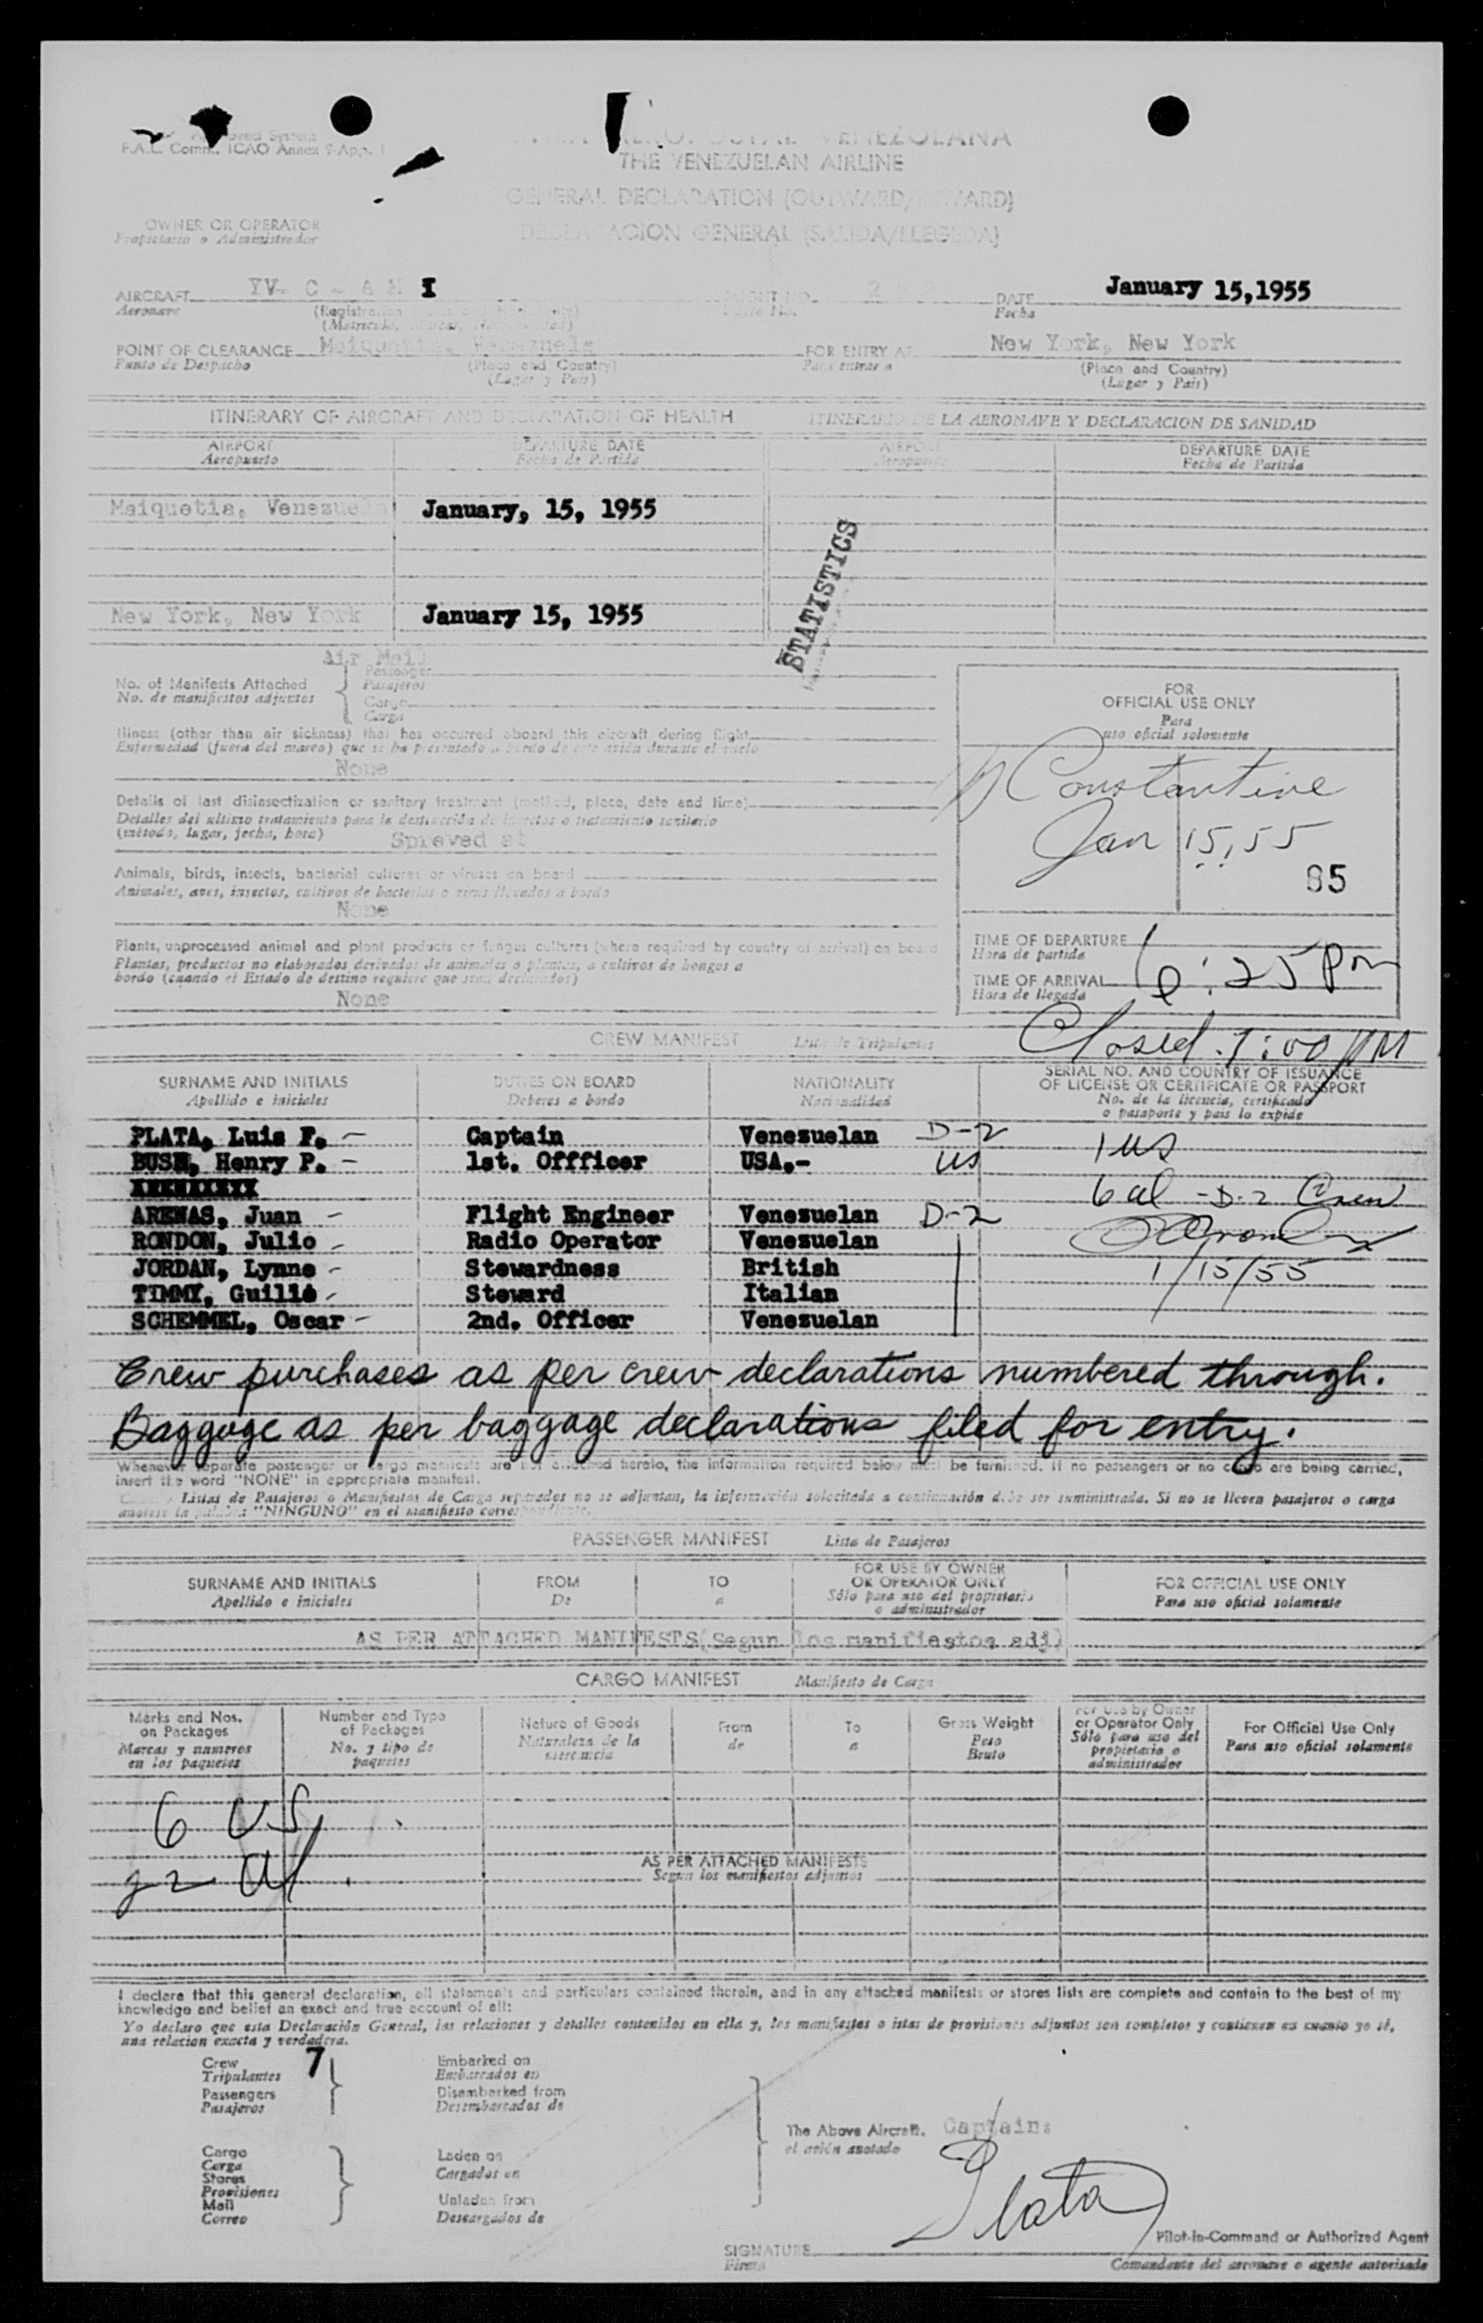 F.A.L. Comm. ICAO Annex 9-App. 1
VENEZOLANA
THE VENEZUELAN AIRLINE
GENERAL DECLARATION (OUTWARD/INWARD)
DECLARACION GENERAL (SALIDA/LLEGADA)
OWNER OR OPERATOR
Propietario o Administrador
AIRCRAFT YV- C - A M I
Aeronave
DATE January 15,1955
Fecha
POINT OF CLEARANCE Maiquetia, Venezuela FOR ENTRY AT New York, New York
Punto de Despacho (Place and Country) Para entrar a (Place and Country)
(Lugar y Pais) (Lugar y Pais)
ITINERARY OF AIRCRAFT AND DECLARATION OF HEALTH ITINERARIO DE LA AERONAVE Y DECLARACION DE SANIDAD
AIRPORT DEPARTURE DATE AIRPORT DEPARTURE DATE
Aeropuerto Fecha de Partida Aeropuerto Fecha de Partida
Maiquetia, Venezuela January, 15, 1955
STATISTICS
New York, New York January 15, 1955
Air Mail
No. of Manifests Attached Passenger
No. de manifiestos adjuntos Pasajeros
Cargo
Carga
Illness (other than air sickness) that has occurred aboard this aircraft during flight
Enfermedad (fuera del mareo) que se ha presentado a bordo de este avión durante el vuelo
None
Details of last disinsectization or sanitary treatment (method, place, date and time)
Detalles del ultimo tratamiento para la destrucción de insectos o tratamiento sanitario
(método, lugar, fecha, hora) Sprayed at
Animals, birds, insects, bacterial cultures or viruses on board
Animales, aves, insectos, cultivos de bacterias o virus llevados a bordo
None
Plants, unprocessed animal and plant products or fungus cultures (where required by country of arrival) on board
Plantas, productos no elaborados derivados de animales o plantas, o cultivos de hongos a
bordo (cuando el Estado de destino requiere que sean declarados)
None
FOR
OFFICIAL USE ONLY
Para
uso oficial solamente
Constantine
Jan 15, 55
85
TIME OF DEPARTURE
Hora de partida
TIME OF ARRIVAL 6:25 pm
Hora de llegada
Closed. 7:00 PM
CREW MANIFEST Lista de Tripulantes
SURNAME AND INITIALS DUTIES ON BOARD NATIONALITY SERIAL NO. AND COUNTRY OF ISSUANCE
OF LICENSE OR CERTIFICATE OR PASSPORT
Apellido e iniciales Deberes a bordo Nacionalidad No. de la licencia, certificado
o pasaporte y pais lo expide
PLATA, Luis F. - Captain Venezuelan D-2 1 US
BUSH, Henry P. - 1st. Offficer USA.- US
6 al - D-2 Crew
ARENAS, Juan - Flight Engineer Venezuelan D-2
RONDON, Julio - Radio Operator Venezuelan
JORDAN, Lynne - Stewardness British 1/15/55
TIMMY, Guilio - Steward Italian
SCHEMMEL, Oscar - 2nd. Officer Venezuelan
Crew purchases as per crew declarations numbered through.
Baggage as per baggage declarations filed for entry.
Whenever separate passenger or cargo manifests are not attached hereto, the information required below must be furnished. If no passengers or no cargo are being carried,
insert the word "NONE" in appropriate manifest.
Listas de Pasajeros o Manifiestos de Carga separados no se adjuntan, la información solicitada a continuación debe ser suministrada. Si no se lleven pasajeros o carga
anótese la palabra "NINGUNO" en el manifiesto correspondiente.
PASSENGER MANIFEST Lista de Pasajeros
SURNAME AND INITIALS FROM TO FOR USE BY OWNER OR OPERATOR ONLY FOR OFFICIAL USE ONLY
Apellido e iniciales De a Sólo para uso del propietario o administrador Para uso oficial solamente
AS PER ATTACHED MANIFESTS(Segun los manifiestos adj)
CARGO MANIFEST Manifiesto de Carga
Marks and Nos. on Packages Number and Type of Packages Nature of Goods From To Gross Weight For Use by Owner or Operator Only For Official Use Only
Marcas y numeros en los paquetes No. y tipo de paquetes Naturaleza de la mercancia de a Peso Bruto Sólo para uso del propietario o administrador Para uso oficial solamente
6 US
22 al
AS PER ATTACHED MANIFESTS
Segun los manifiestos adjuntos
I declare that this general declaration, all statements and particulars contained therein, and in any attached manifests or stores lists are complete and contain to the best of my
knowledge and belief an exact and true account of all:
Yo declaro que esta Declaración General, las relaciones y detalles contenidos en ella y, los manifiestos o istas de provisiones adjuntos son completos y contienen en cuanto yo sé,
una relacion exacta y verdadera.
Crew 7 Embarked on
Tripulantes Embarcados en
Passengers Disembarked from
Pasajeros Desembarcados de
The Above Aircraft. Captain:
el avión anotado
Cargo Laden on
Carga Cargados en
Stores
Provisiones Unladen from
Mail Descargados de
Correo
Plata
Pilot-in-Command or Authorized Agent
SIGNATURE
Firma Comandante del aeronave o agente autorizado